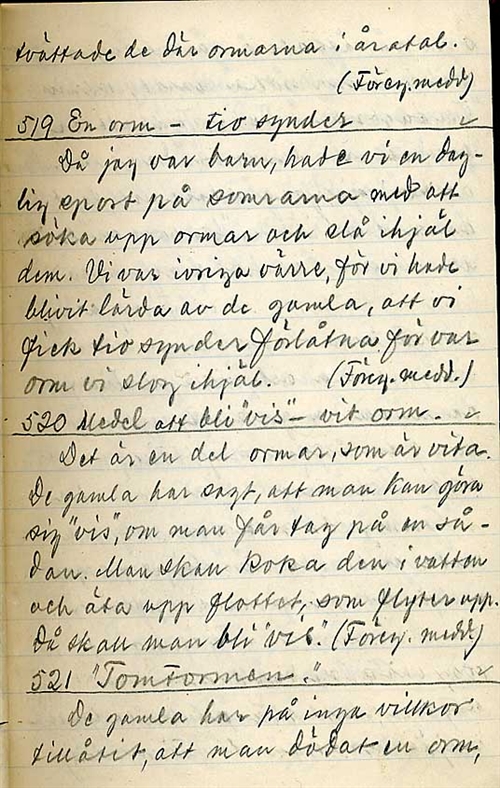 tvättade de där ormarna i åratal.
(Föreg. medd)
519 En orm – tio synder
Då jag var barn, hade vi en dag-
lig sport på somrarna med att
söka upp ormar och slå ihjäl
dem. Vi var ivriga värre, för vi hade
blivit lärda av de gamla, att vi
fick tio synder förlåtna för var
orm vi slog ihjäl. (Föreg. medd.)
520 Medel att bli "vis" – vit orm.
Det är en del ormar, som är vita.
De gamla har sagt, att man kan göra
sig "vis", om man får tag på en så-
dan. Man skall koka den i vatten
och äta upp flottet, som flyter upp.
Då skall man bli "vis". (Föreg. medd.)
521 "Tomtormen."
De gamla har på inga villkor
tillåtit, att man dödat en orm,